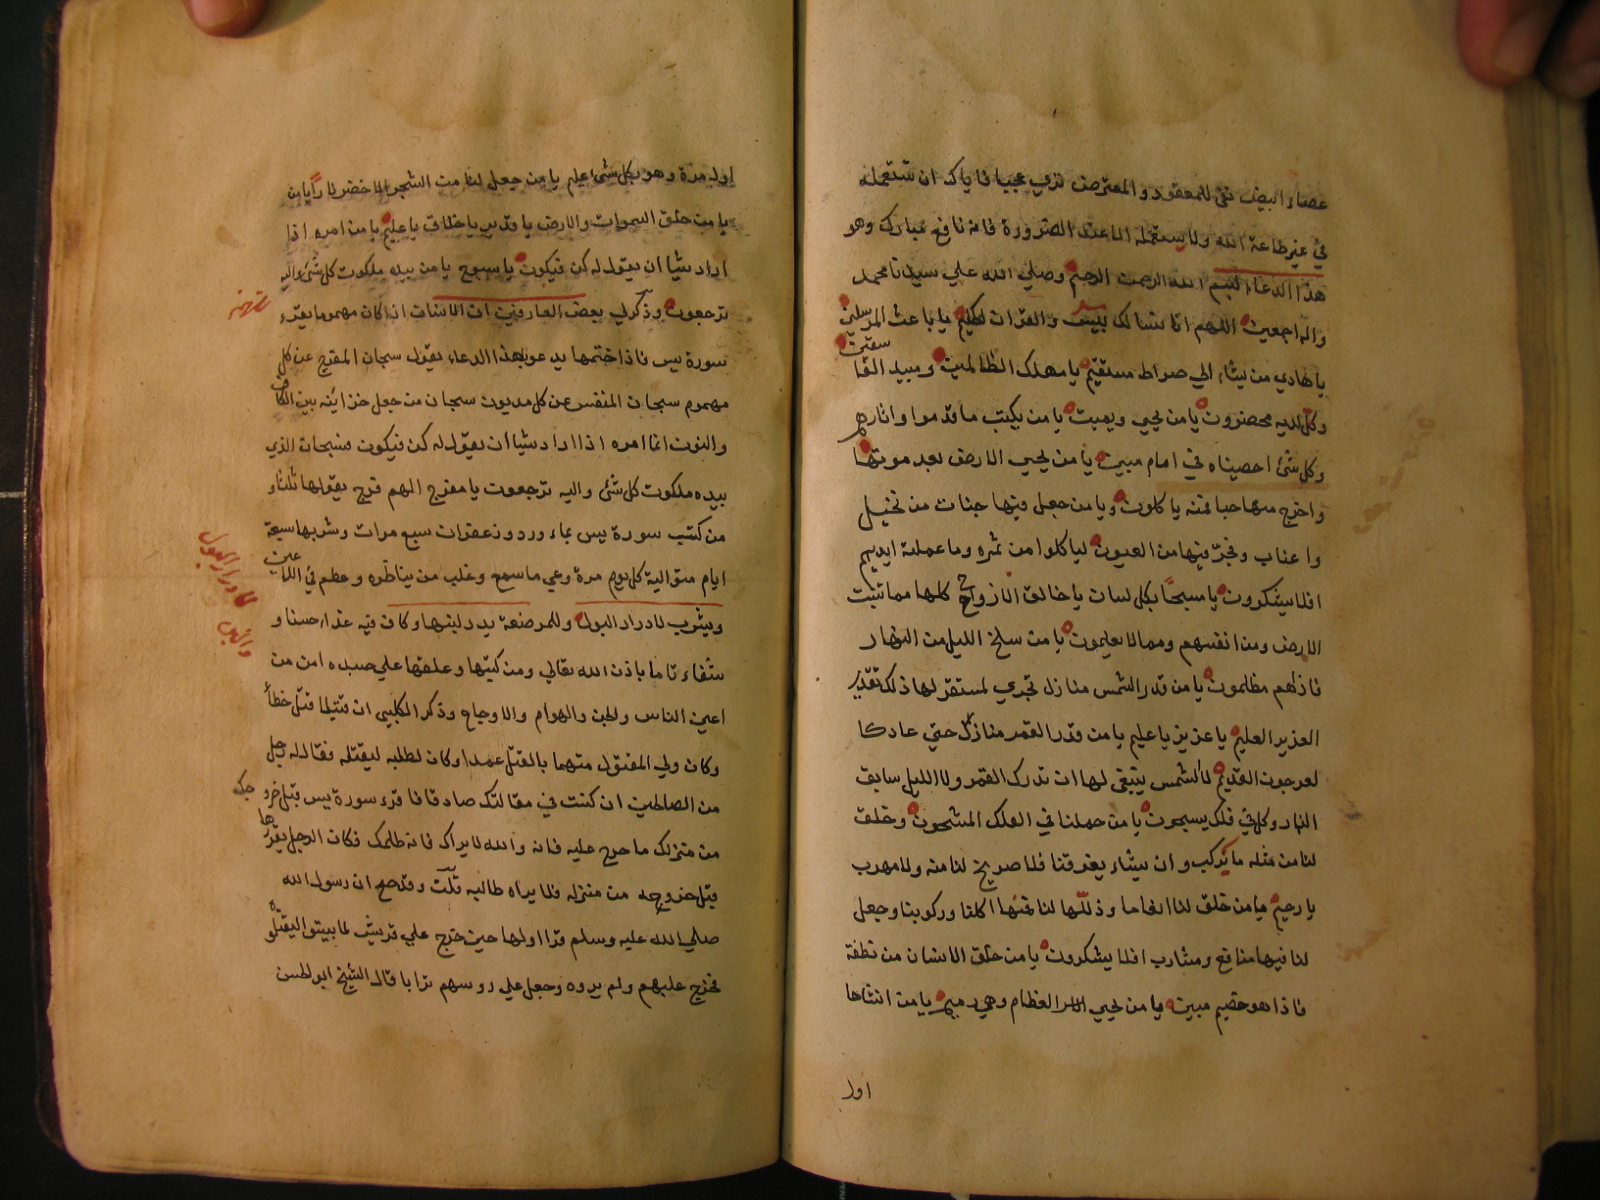 عصاء ابيض نقي للمعقود والمعترض تري عجبا فاياك ان تستعمله
في غير طاعة الله ولا يستعمله الا عند الضرورة فانه نافع مبارك وهو
هذا الدعاء لبسم الله الرحمن الرحيم وصلي الله علي سيدنا محمد
واله اجمعين اللهم انا نسالك بيس والقران الحكيم يا باعث المرسلين
يا هادي من يشاء الي صراط مستقيم يا مهلك الظالمين ومبيد الفا
سقين
وكل لديه محضرون يا من يحيي ويميت يا من يكتب ما قدموا واثارهم
وكل شئ احصيناه في امام مبين يا من يحيي الارض بعد موتها
واخرج منها حبا فمنه ياكلون ويا من جعل فيها جنات من نخيل
واعناب وفجر فيها من العيون لياكلوا من ثمره وما عملته ايديهم
افلا يشكرون يا مسبحا بكل لسان يا خالق الازواج كلها مما تنبت
الارض ومن انفسهم ومما لا يعلمون يا من سلخ الليل من النهار
فاذا هم مظلمون يا من قدر الشمس منازل تجري لمستقر لها ذلك تقدير
العزيز العليم يا عزيز يا عليم يا من قدر القمر منازل حتي عاد كا
لعرجون القديم لا الشمس ينبغي لها ان تدرك القمر ولا الليل سابق
النهار وكل في فلك يسبحون يا من حملنا في الفلك المشحون وخلق
لنا من مثله ما يركب وان يشاء يغرقنا فلا صريخ لنا منه ولا مهرب
يا رحيم يا من خلق لنا انعاما وذللها لنا فمنها اكلنا وركوبنا وجعل
لنا فيها منافع ومشارب افلا يشكرون يا من خلق الانسان من نطفة
فاذا هو خصيم مبين يا من يحيي العظام وهي رميم يا من انشاها
اول
اول مرة وهو بكل شئ عليم يا من جعل لنا من الشجر الاخضر نارا يا من
يا من خلق السموات والارض يا قدير يا خلاق يا عليم يا من امره اذا
اراد شيا ان يقول له كن فيكون يا سبوح يا من بيده ملكوت كل شئ واليه
ترجعون وذكر لي بعض العارفين ان الانسان اذا كان مهموما يقرء
سورة يس فاذا ختمها يدعو بهذا الدعاء يقول سبحان المفرج عن كل
مهموم سبحان المنفس عن كل مديون سبحان من جعل خزاينه بين الكاف
والنون انما امره اذا اراد شيا ان يقول له كن فيكون فسبحان الذي
بيده ملكوت كل شئ واليه ترجعون يا مفرج الهم فرج يقولها ثلثا و
من كتب سورة يس بماء ورد وزعفران سبع مرات وشربها سبعة
ايام متوالية كل يوم مرة وعي ما سمع وغلب من يناظره وعظم في اللا
عين
ويشرب لادرار البول وللمرضعة يدر لبنها وكان فيه غذاء حسنا و
شفاء تاما باذن الله تعالي ومن كتبها وعلقها علي جسده امن من
اعين الناس والجن والهوام والاوجاع وذكر الكلبي ان قتيلا قتل خطأ
وكان ولي المقتول متهما بالقتل عمدا وكان لطلبه ليقتله فقال له رجل
من الصالحين ان كنت في مقالتك صادقا فاقرء سورة يس قبل خرو
جك
من منزلك ما حرج عليه فانه والله لا يراك فانه ظلمك فكان الرجل يقرءها
قبل خروجه من منزله فلا يراه طالبه قلت وقد صح ان رسول الله
صلي الله عليه وسلم قرا اولها حين خرج علي قريش لما بيتوا ليقتلوه
فخرج عليهم ولم يروه وجعل علي روسهم ترابا قال الشيخ ابو الحسن
لادرار البول
واللبن